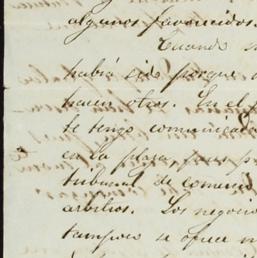 algunos favorecidos.
Cuando
había sido porque
hacen otros. En el
te tengo comunicado
en la plaza, pues
tribunal de comercio
arbitros. Los negocios
tampoco se ofrece